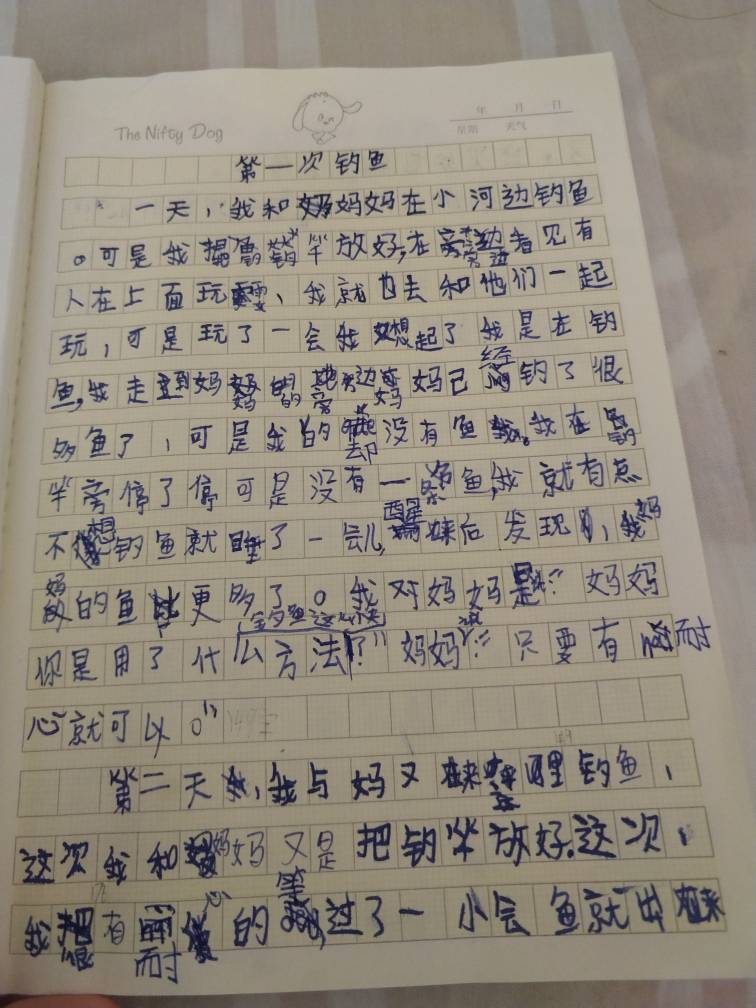 The Nifty Dog
年 月 日
星期 天气
第一次钓鱼
一天，我和妈妈在小河边钓鱼
。可是我把鱼钓竿放好，在旁边看见有
人在上面玩耍、我就也去和他们一起
玩，可是玩了一会我想起了我是在钓
鱼，我走到妈妈的旁边妈妈已经钓了很
多鱼了，可是我的却没有鱼。我在钓
竿旁停了停可是没有一条鱼，我就有点
不想钓鱼就睡了一会儿，醒来后发现，我妈
妈的鱼更多了。我对妈妈说：“妈妈
你是用了什么方法？”妈妈说：“只要有耐
心就可以。”
第二天，我与妈又来这里钓鱼，
这次我和妈妈又是把钓竿放好。这次，
我很有耐心的等，过了一小会鱼就出来